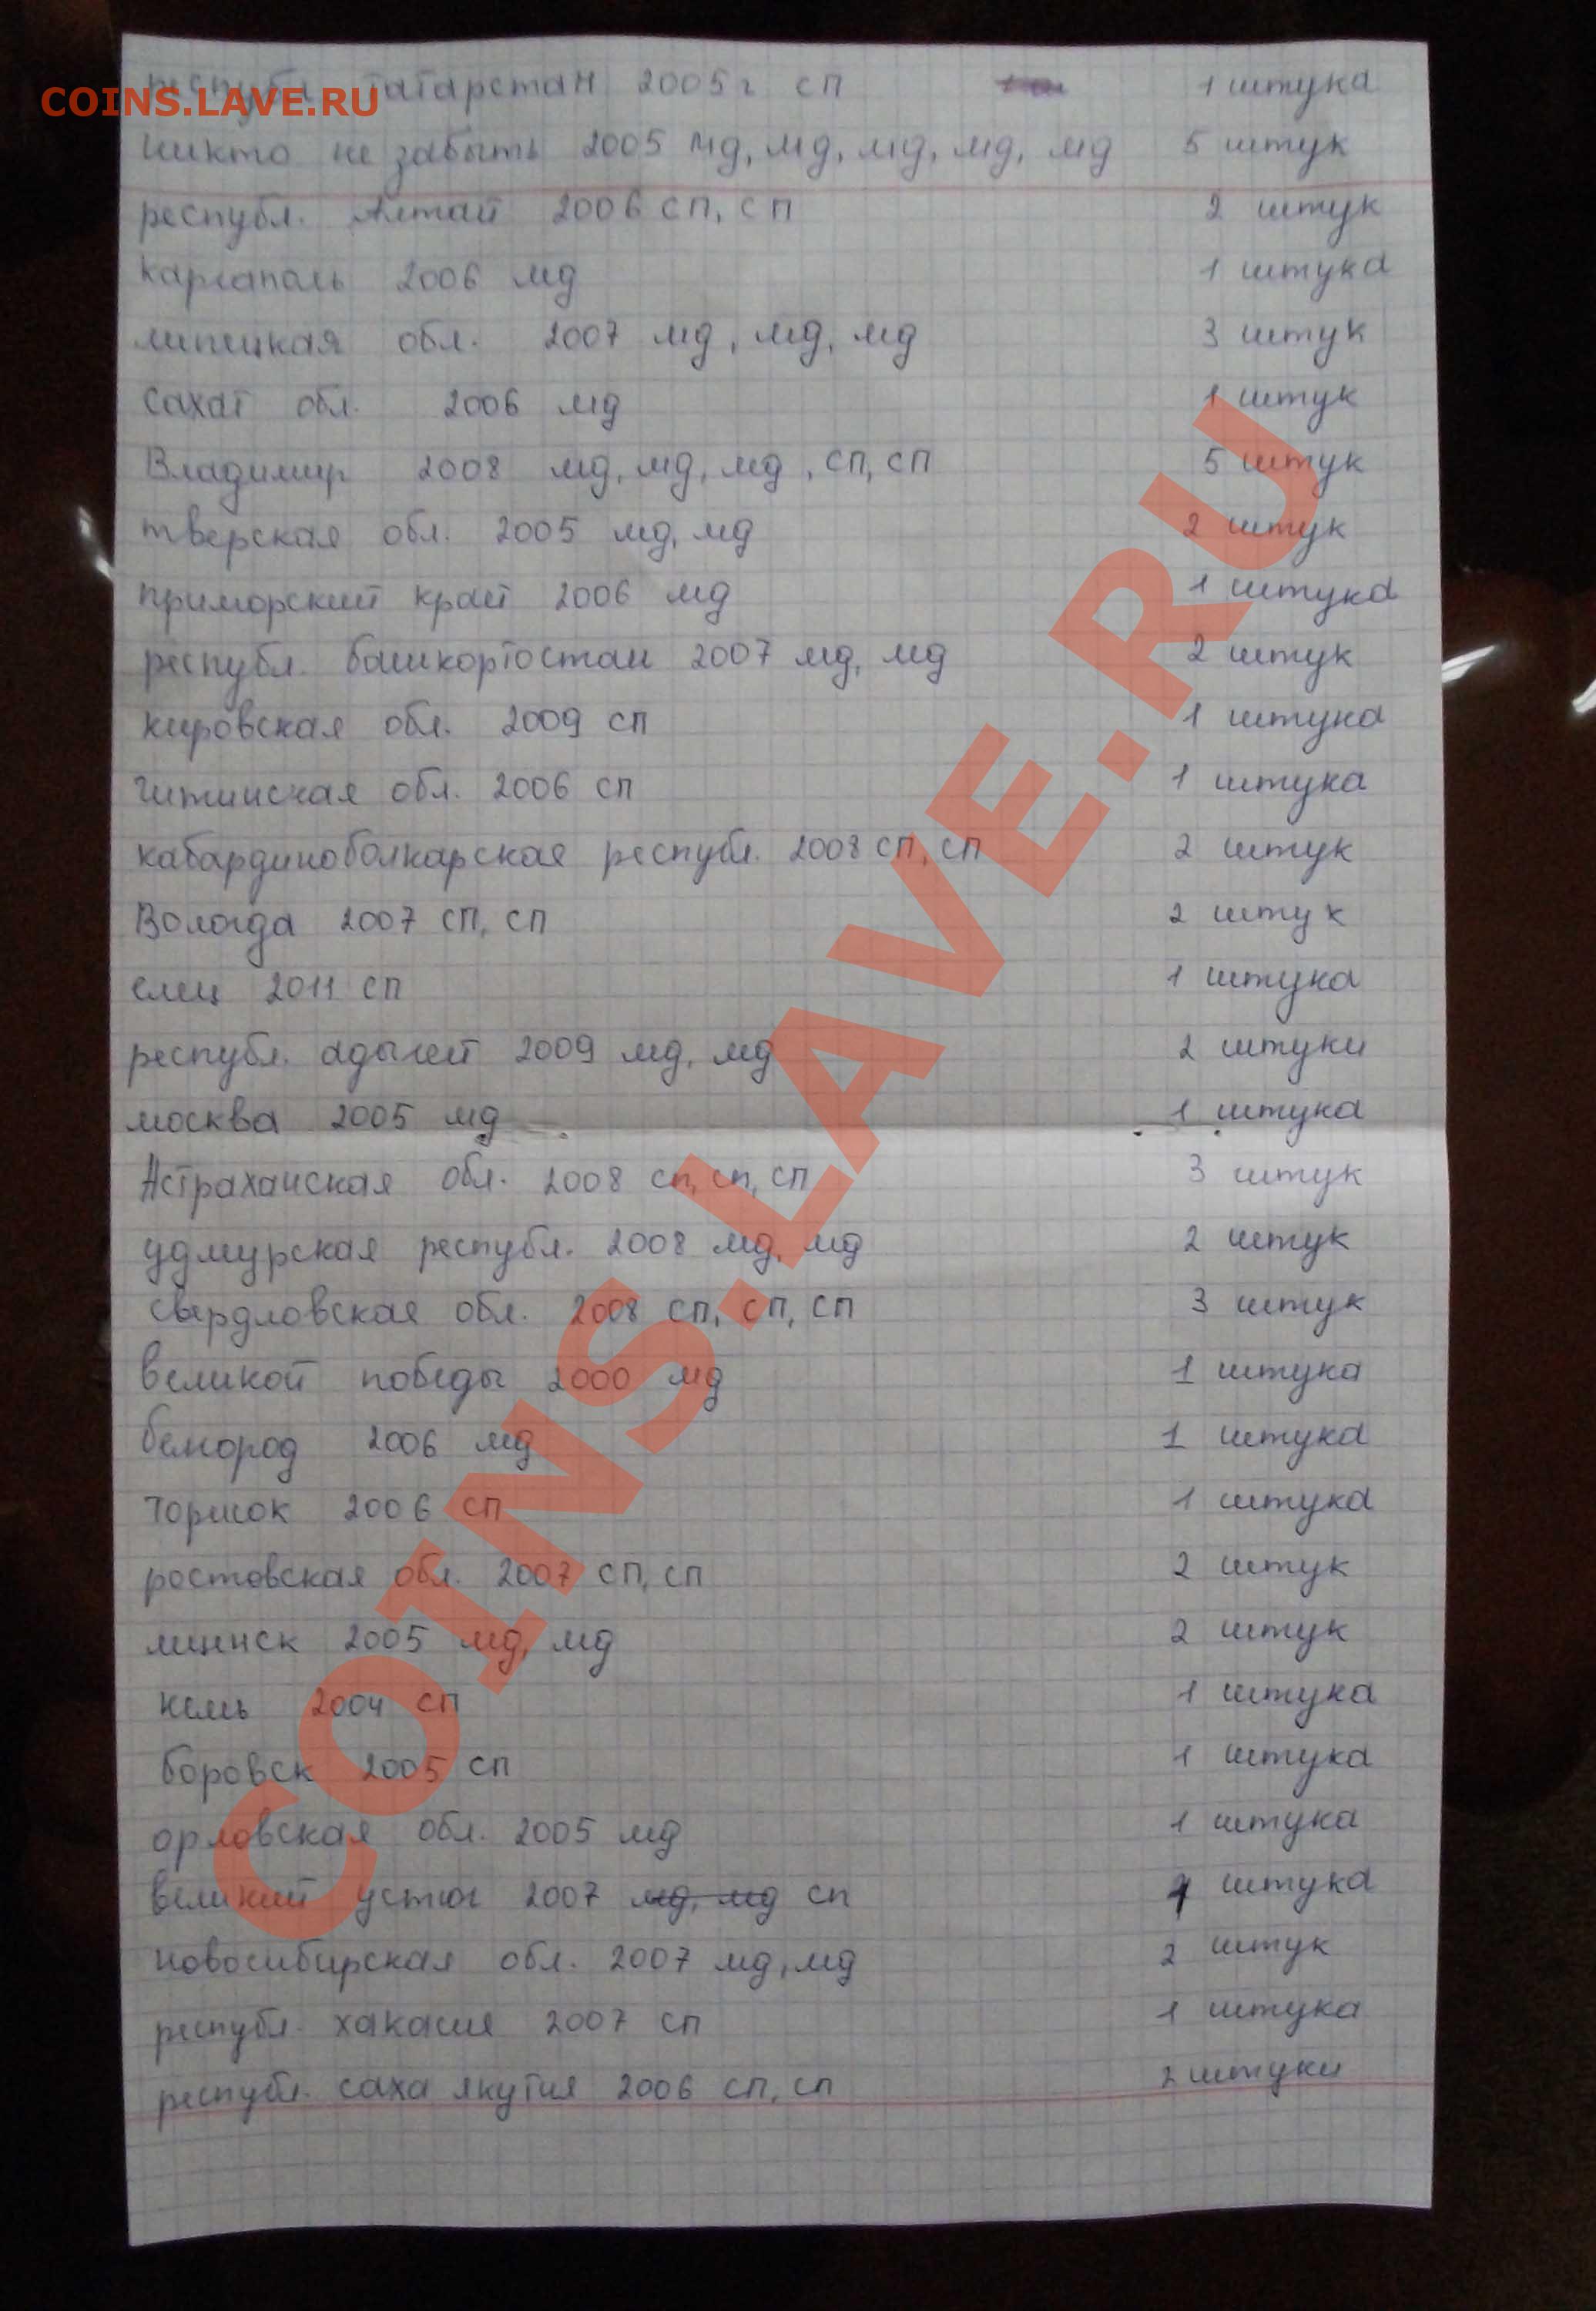 республ. татарстан 2005г сп 1 штука
COINS.LAVE.RU
никто не забыть 2005 мд, мд, мд, мд, мд 5 штук
республ. Алтай 2006 сп, сп 2 штук
каргаполь 2006 мд 1 штука
липецкая обл. 2007 мд, мд, мд 3 штук
сахат обл. 2006 мд 1 штук
Владимир 2008 мд, мд, мд, сп, сп 5 штук
тверская обл. 2005 мд, мд 2 штук
приморский край 2006 мд 1 штука
республ. башкортостан 2007 мд, мд 2 штук
кировская обл. 2009 сп 1 штука
читинская обл. 2006 сп 1 штука
кабардиноболкарская республ. 2008 сп, сп 2 штук
Вологда 2007 сп, сп 2 штук
елец 2011 сп 1 штука
республ. адыгей 2009 мд, мд 2 штуки
москва 2005 мд 1 штука
Астраханская обл. 2008 сп, сп, сп 3 штук
удмурская республ. 2008 мд, мд 2 штук
свердловская обл. 2008 сп, сп, сп 3 штук
великой победы 2000 мд 1 штука
белгород 2006 мд 1 штука
торжок 2006 сп 1 штука
ростовская обл. 2007 сп, сп 2 штук
мценск 2005 мд, мд 2 штук
кемь 2004 сп 1 штука
боровск 2005 сп 1 штука
орловская обл. 2005 мд 1 штука
великий устюг 2007 мд, мд сп 1 штука
новосибирская обл. 2007 мд, мд 2 штук
республ. хакасия 2007 сп 1 штука
республ. саха якутия 2006 сп, сп 2 штуки
COINS.LAVE.RU